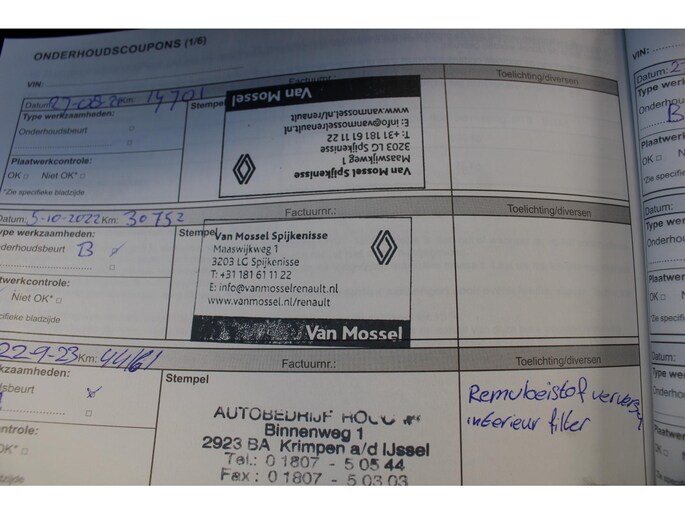 ONDERHOUDSCOUPONS (1/6)
VIN:
Datum: 27-08-2 Km: 14701
Factuurnr.:
Toelichting/diversen
Type werkzaamheden:
Stempel
Onderhoudsbeurt
Plaatwerkcontrole:
OK Niet OK*
*Zie specifieke bladzijde
Van Mossel Spijkenisse
Maaswijkweg 1
3203 LG Spijkenisse
T: +31 181 61 11 22
E: info@vanmosselrenault.nl
www.vanmossel.nl/renault
Van Mossel
Datum: 5-10-2022 Km: 30752
Factuurnr.:
Toelichting/diversen
ype werkzaamheden:
Stempel
nderhoudsbeurt B
laatwerkcontrole:
Niet OK*
specifieke bladzijde
Van Mossel Spijkenisse
Maaswijkweg 1
3203 LG Spijkenisse
T: +31 181 61 11 22
E: info@vanmosselrenault.nl
www.vanmossel.nl/renault
Van Mossel
22-9-23 Km: 44161
Factuurnr.:
Toelichting/diversen
kzaamheden:
Stempel
dsbeurt
controle:
t OK*
ke bladzijde
AUTOBEDRIJF
Binnenweg 1
2923 BA Krimpen a/d IJssel
Tel.: 0 1807 - 5 05 44
Fax : 0 1807 - 5 03 03
Remvloeistof
interieur filter
VIN:
Datum: 2
Type werk
Onderhou
B
Plaatwer
OK Nie
*Zie specif
Datum:
Type we
Onderho
Plaatw
OK
*Zie spe
Datu
Type
Onde
Plaa
OK
*Zie